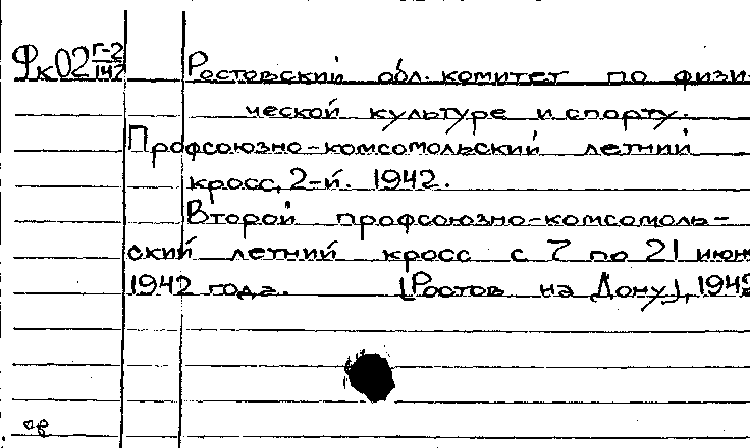 Фк02 Г-2/142 Ростовский обл. комитет по физи-
ческой культуре и спорту.
Профсоюзно-комсомольский летний
кросс, 2-й. 1942.
Второй профсоюзно-комсомоль-
ский летний кросс с 7 по 21 июня
1942 года. [Ростов на Дону], 1942